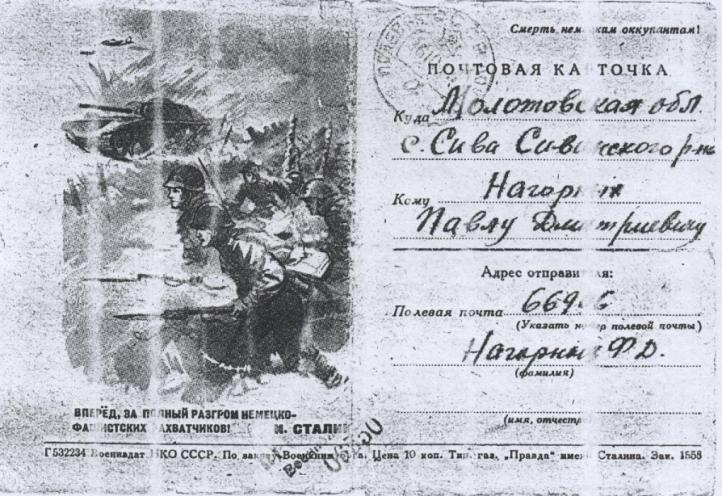 Смерть немецким оккупантам!
ПОЧТОВАЯ КАРТОЧКА
Куда Молотовская обл.
с. Сива Сивинского р-на
Кому
Павлу Дмитриевичу
Адрес отправителя:
Полевая почта
(Указать номер полевой почты)
Ф.Д.
(фамилия)
(имя, отчество
ВПЕРЁД, ЗА ПОЛНЫЙ РАЗГРОМ НЕМЕЦКО-
ФАШИСТСКИХ ЗАХВАТЧИКОВ!
И. СТАЛИН
Г532234 Воениздат НКО СССР. По заказу Цена 10 коп. Тип. газ. „Правда" имени Сталина. Зак. 1558